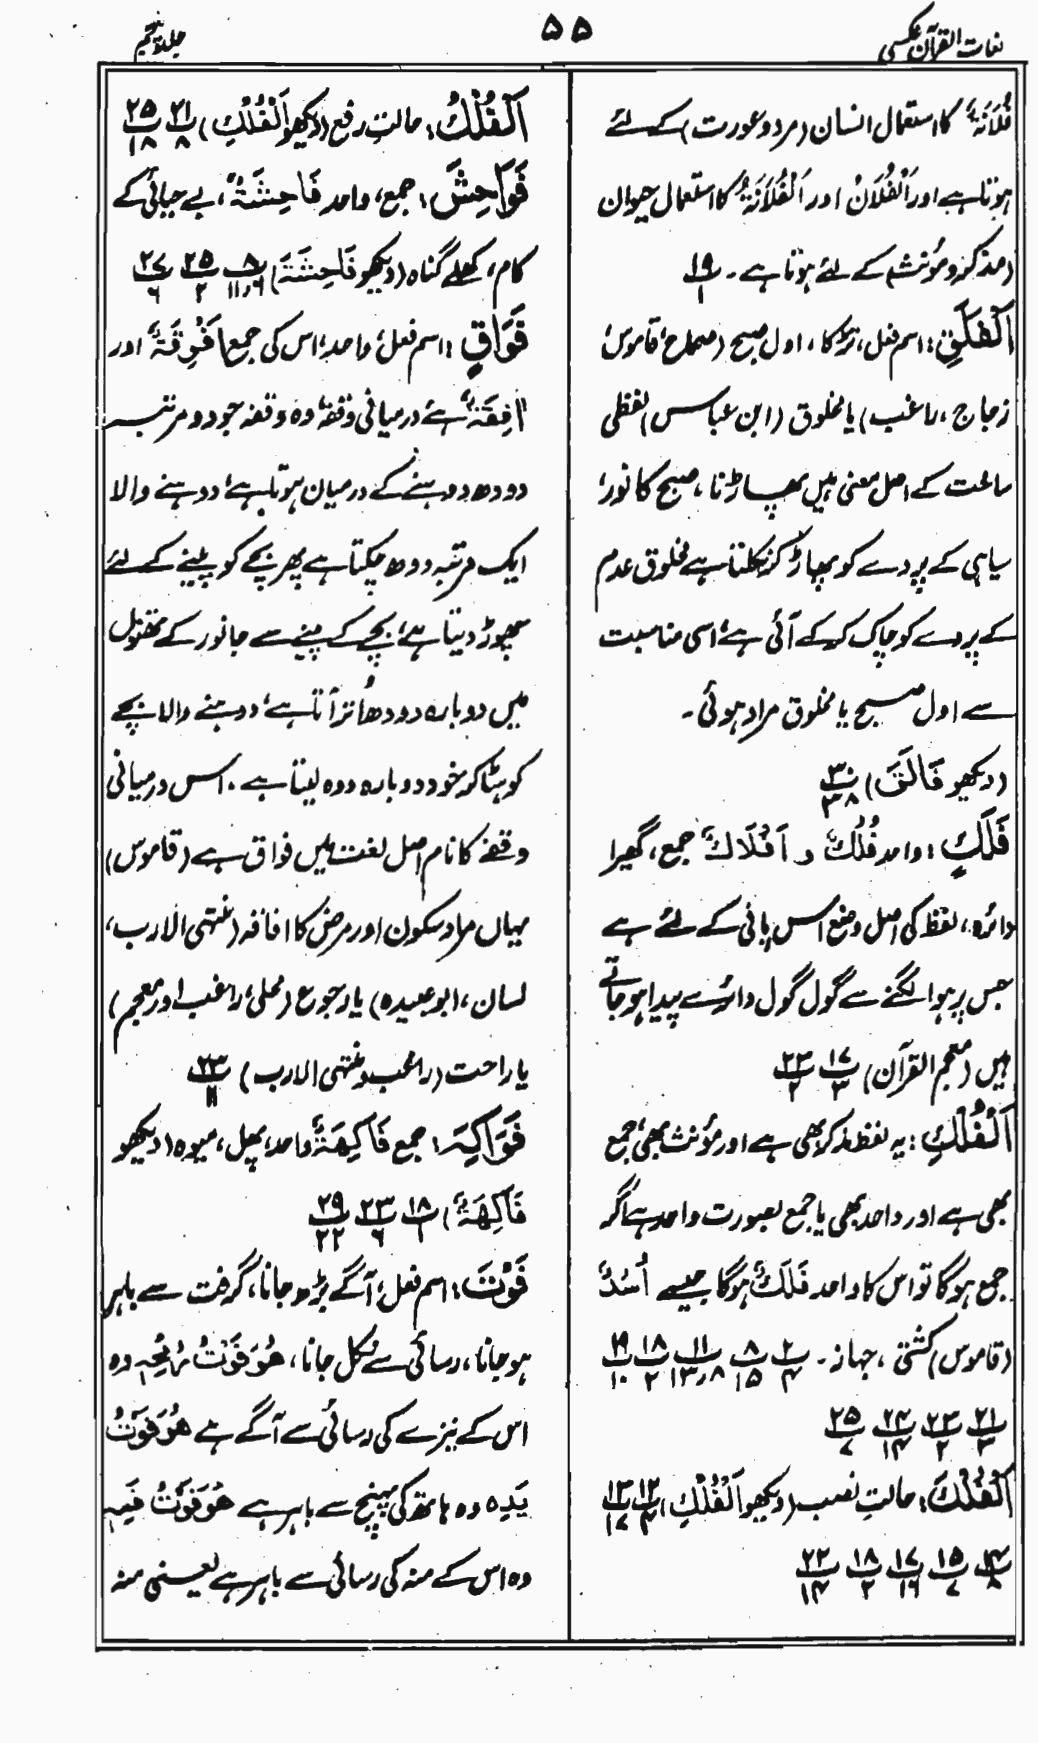 لغات القرآن عکسی
۵۵
جلد پنجم
فُلَانَۃٌ کا استعمال انسان (مرد و عورت) کے لئے
ہوتا ہے اور اَلْفُلَانُ اور اَلْفُلَانَۃُ کا استعمال حیوان
(مذکر و مؤنث) کے لئے ہوتا ہے۔ ۱۹/۱
اَلْفَلَقِ: اسم فعل، تڑکا، اول صبح (صحاح، قاموس،
زجاج، راغب) یا مخلوق (ابن عباس) لفظی
ساخت کے اصل معنی ہیں پھاڑنا، صبح کا نور،
سیاہی کے پردے کو پھاڑ کر نکلتا ہے مخلوق عدم
کے پردے کو چاک کر کے آئی ہے، اسی مناسبت
سے اول صبح یا مخلوق مراد ہوئی۔
(دیکھو فَالِقَ) ۳۰/۳۸
فَلَکٍ: واحد فُلُکٌ و اَفْلَاکٌ جمع، گھیرا
دائرہ، لفظ کی اصل وضع اس پانی کے لئے ہے
جس پر ہوا لگنے سے گول گول دائرے پیدا ہو جاتے
ہیں (معجم القرآن) ۱۷/۳ ۲۳/۲
اَلْفُلْکِ: یہ لفظ مذکر بھی ہے اور مؤنث بھی، جمع
بھی ہے اور واحد بھی یا جمع بصورت واحد ہے اگر
جمع ہوگا تو اس کا واحد فَلَکٌ ہوگا جیسے اُسُدٌ
(قاموس) کشتی، جہاز۔ ۲/۴ ۸/۱۵ ۱۱/۱۳٫۸ ۱۸/۲ ۱۹/۱۰
۲۱/۳ ۲۳/۲ ۲۴/۱۴ ۲۵/۷
اَلْفُلْکَ: حالتِ نصب (دیکھو اَلْفُلْکِ) ۱۲/۴ ۱۳/۱۷
۱۴/۸ ۱۵/۷ ۱۷/۱۶ ۱۸/۲ ۲۲/۱۴
اَلْفُلْکُ: حالتِ رفع (دیکھو اَلْفُلْکِ) ۲۱/۸ ۲۵/۱۸
فَوَاحِشَ: جمع، واحد فَاحِشَۃٌ، بے حیائی کے
کام، کھلے گناہ (دیکھو فَاحِشَۃً) ۸/۱۱٫۶ ۲۵/۲ ۲۷/۶
فَوَاقٍ: اسم فعل، واحد، اس کی جمع اَفْوِقَۃٌ اور
اٰفِقَۃٌ ہے، درمیانی وقفہ، وہ وقفہ جو دو مرتبہ
دودھ دوہنے کے درمیان ہوتا ہے، دوہنے والا
ایک مرتبہ دودھ چکتا ہے پھر بچے کو پلینے کے لئے
چھوڑ دیتا ہے، بچے کے پینے سے جانور کے تھنوں
میں دوبارہ دودھ اُتر آتا ہے، دوہنے والا بچے
کو ہٹا کر خود دوبارہ دوہ لیتا ہے، اس درمیانی
وقفے کا نام اصل لغت میں فواق ہے (قاموس)
یہاں مراد سکون اور مرض کا افاقہ (منتہی الارب،
لسان، ابو عبیدہ) یا رجوع (محلی، راغب اور معجم)
یا راحت (راغب و منتہی الارب) ۲۳/۱۱
فَوَاکِہَ: جمع فَاکِہَۃٌ واحد، پھل، میوہ (دیکھو
فَاکِہَۃٌ) ۱۸/۱ ۲۳/۶ ۲۹/۲۲
فَوْتَ: اسم فعل، آگے بڑھ جانا، گرفت سے باہر
ہو جانا، رسائی سے نکل جانا، ھُوَ فَوْتُ رُمْحِہٖ وہ
اس کے نیزے کی رسائی سے آگے ہے ھُوَ فَوْتُ
یَدِہٖ وہ ہاتھ کی پہنچ سے باہر ہے ھُوَ فَوْتُ فَمِہٖ
وہ اس کے منہ کی رسائی سے باہر ہے یعنی منہ